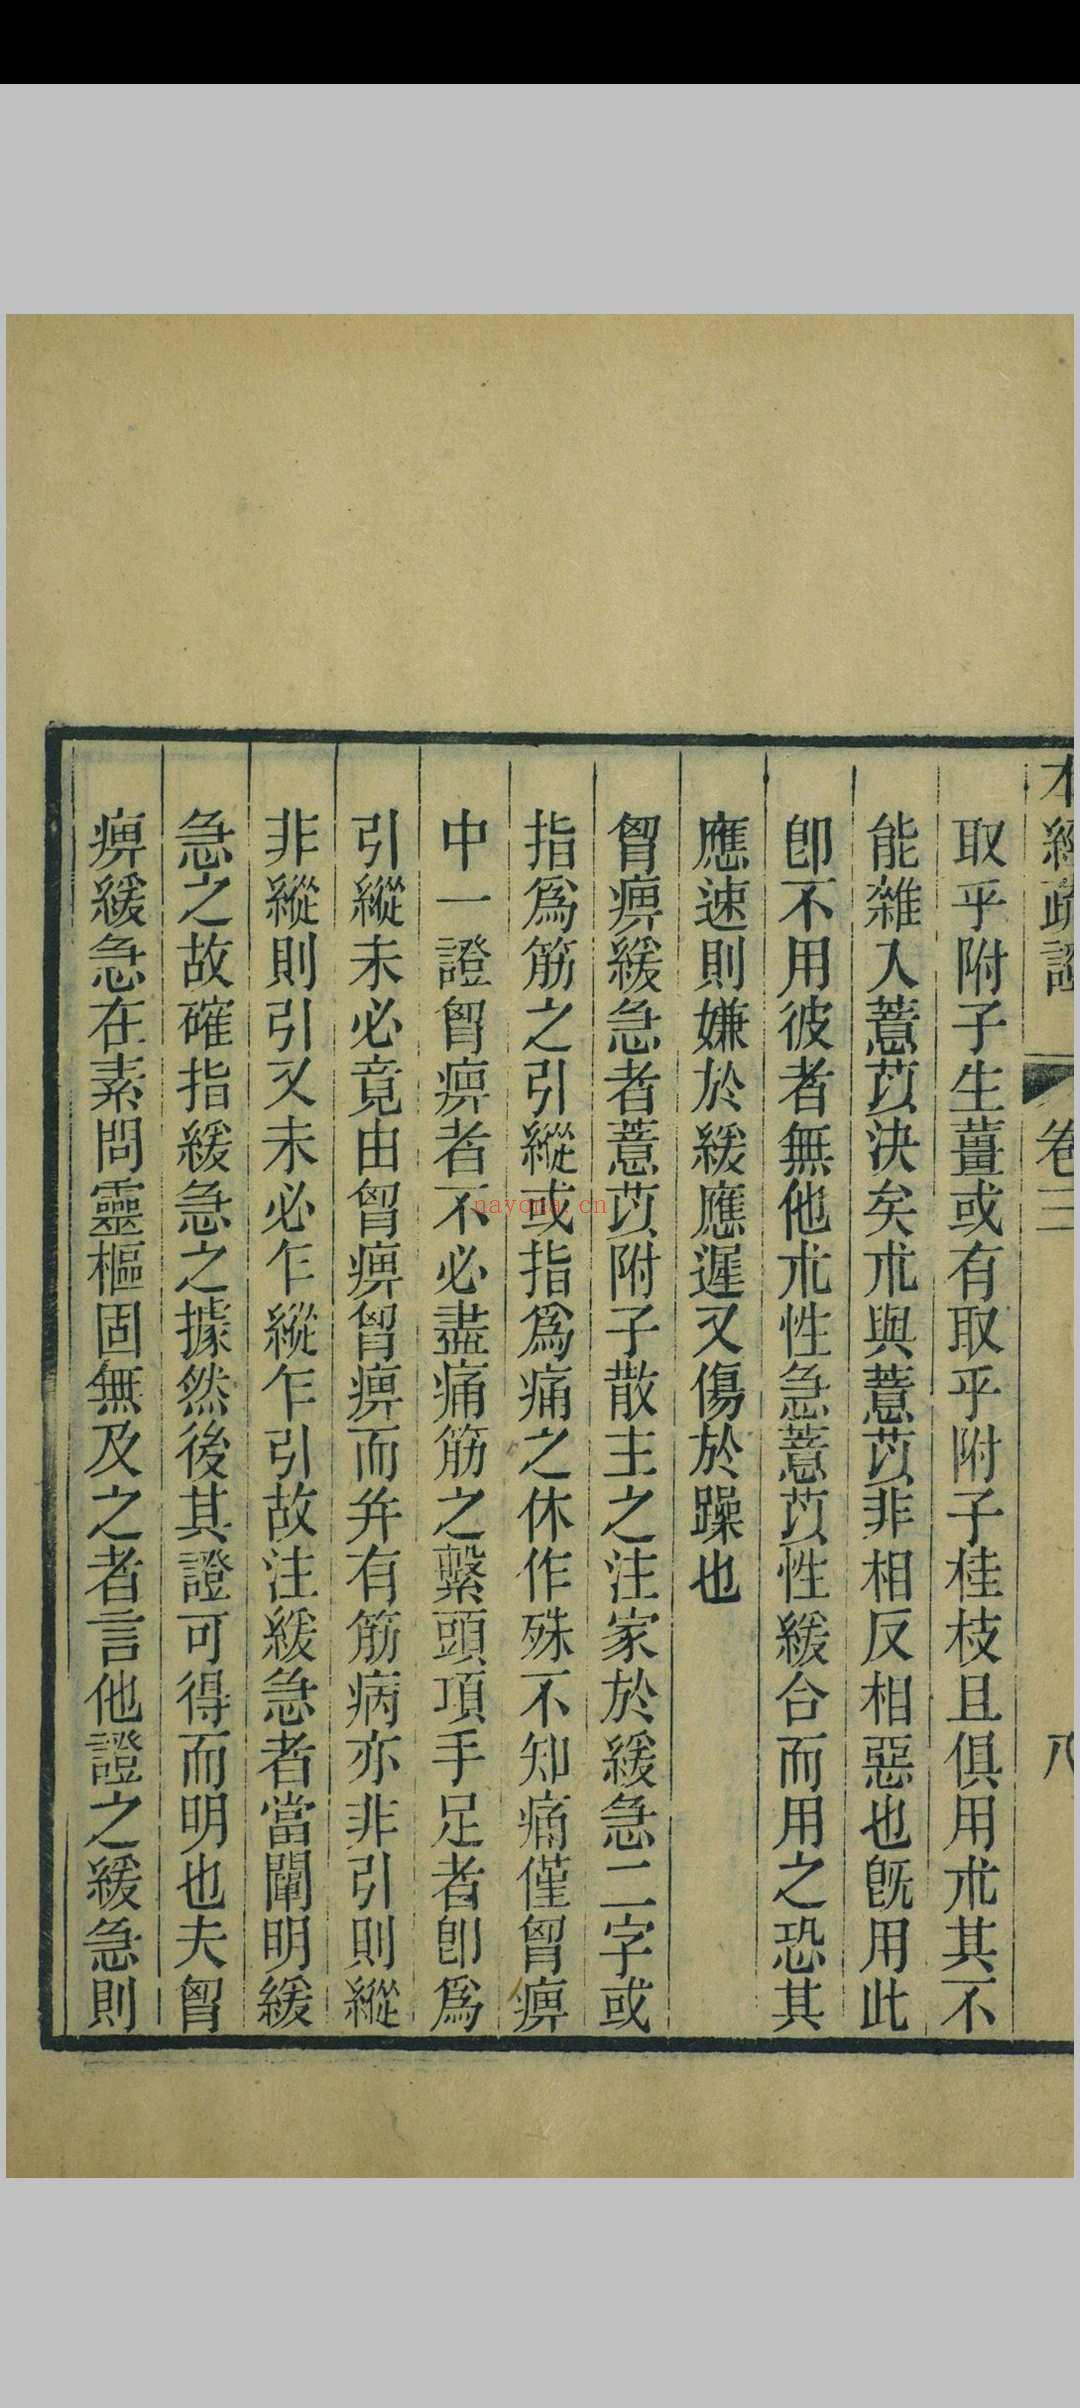 本經疏證 卷三 八
取乎附子生薑或有取乎附子桂枝且俱用朮其不
能雜入薏苡決矣朮與薏苡非相反相惡也旣用此
卽不用彼者無他朮性急薏苡性緩合而用之恐其
應速則嫌於緩應遲又傷於躁也
胷痹緩急者薏苡附子散主之注家於緩急二字或
指爲筋之引縱或指爲痛之休作殊不知痛僅胷痹
中一證胷痹者不必盡痛筋之繫頭項手足者卽爲
引縱未必竟由胷痹胷痹而并有筋病亦非引則縱
非縱則引又未必乍縱乍引故注緩急者當闡明緩
急之故確指緩急之據然後其證可得而明也夫胷
痹緩急在素問靈樞固無及之者言他證之緩急則
nayona.cn